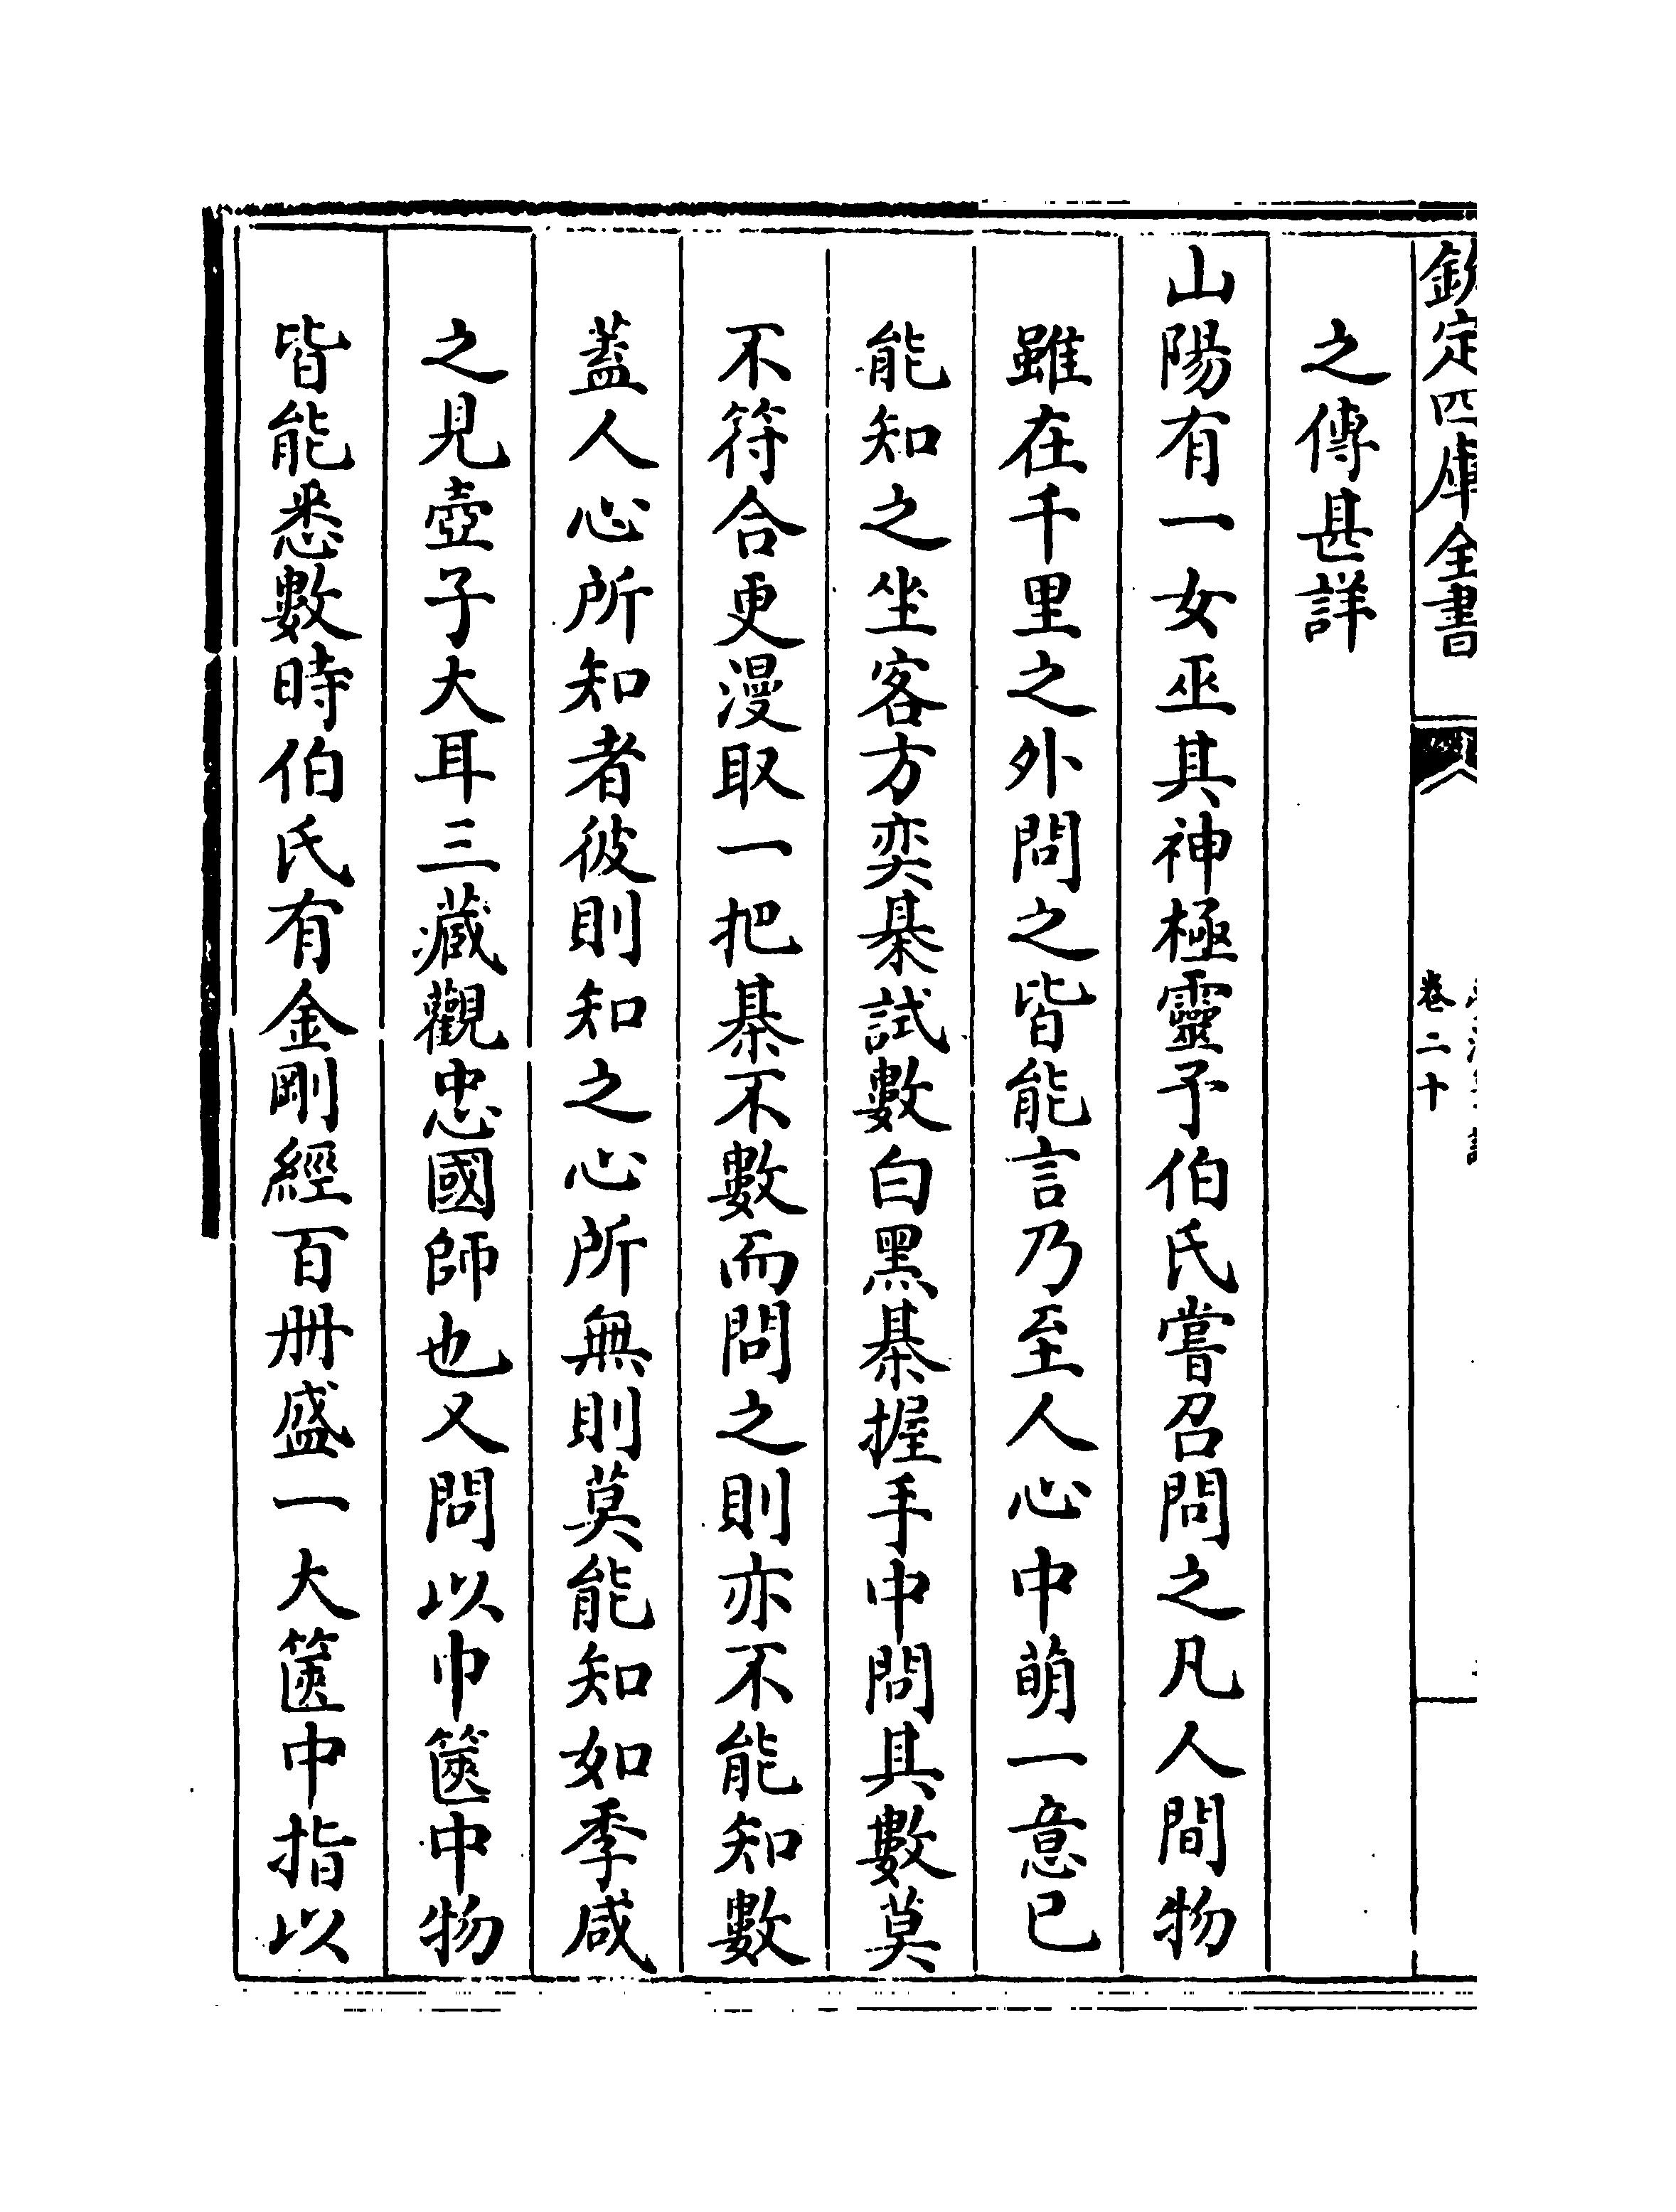 欽定四庫全書
卷二十
之傳甚詳
山陽有一女巫其神極靈予伯氏嘗召問之凡人間物
雖在千里之外問之皆能言乃至人心中萌一意已
能知之坐客方奕棊試數白黑棊握手中問其數莫
不符合更漫取一把棊不數而問之則亦不能知數
蓋人心所知者彼則知之心所無則莫能知如季咸
之見壺子大耳三藏觀忠國師也又問以巾篋中物
皆能悉數時伯氏有金剛經百冊盛一大篋中指以